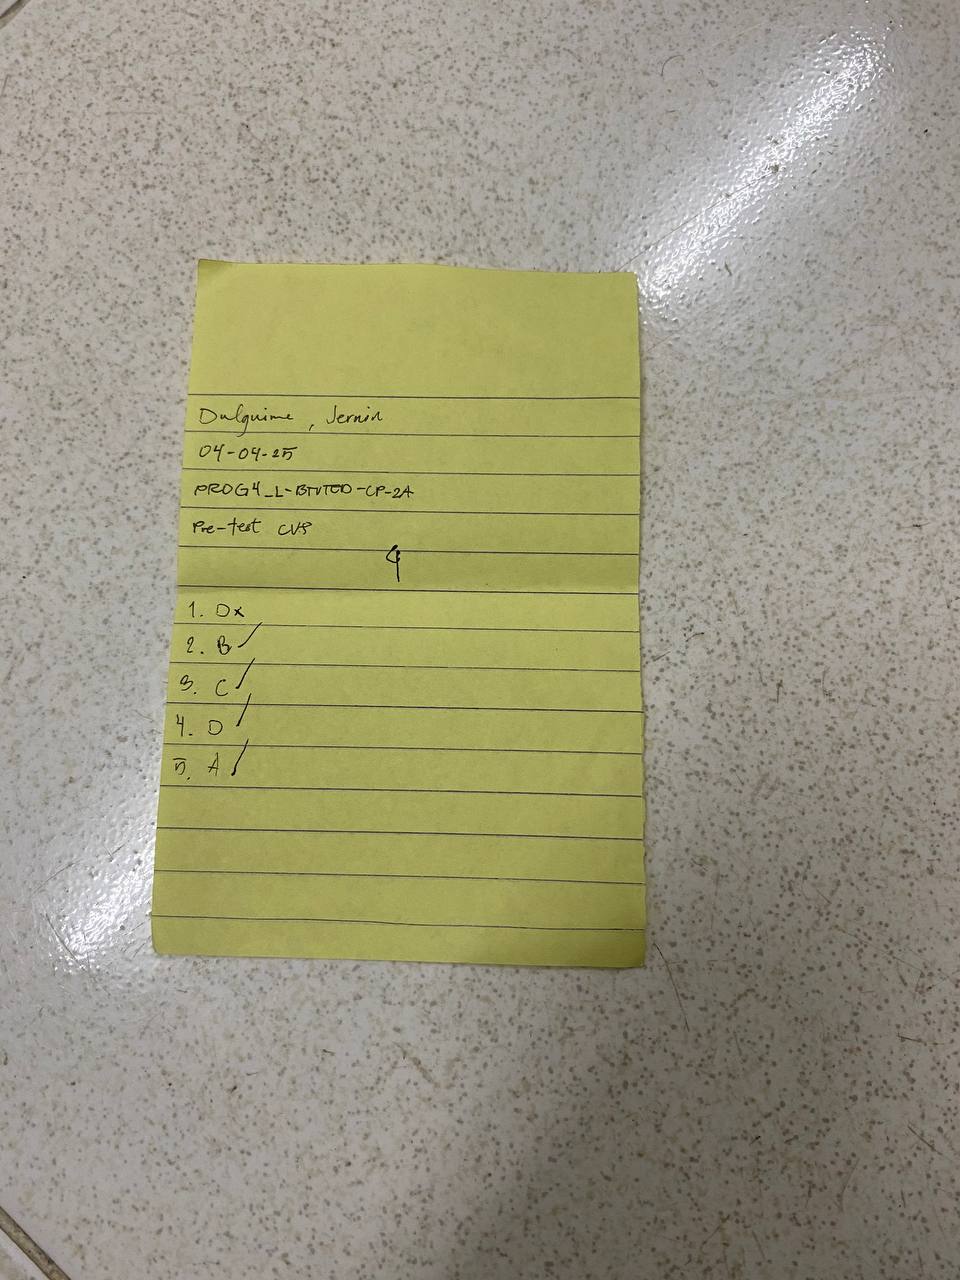 Dulguime, Jernin
04-04-25
PROG4_L-BTVTED-CP-2A
Pre-test CVS
4
1. D×
2. B ✓
3. C ✓
4. D ✓
5. A ✓